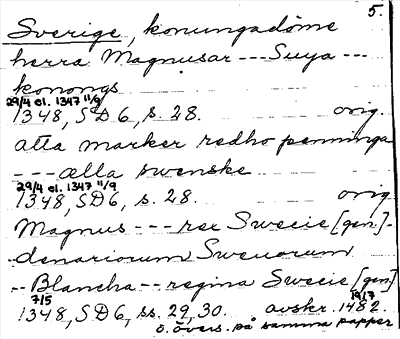 5.
Sverige, konungadöme
herra Magnusar --- Suya ---
konongs
29/4 el. 1347 11/9
1348, SD 6, s. 28. orig.
atta marker redho penninga
--- ælla swenske
29/4 el. 1347 11/9
1348, SD 6, s. 28. orig.
Magnus --- rex Swecie [gen] -
denariorum Sweuorum
-- Blancha -- regina Swecie [gen]
7/5 19/7
1348, SD 6, ss. 29, 30. avskr. 1482.
o. övers. på samma papper